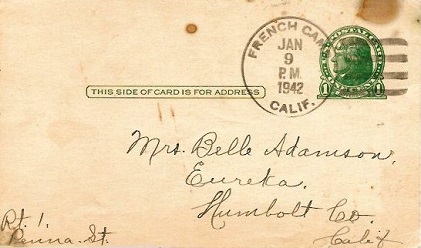 FRENCH CAMP
JAN
9
P.M.
1942
CALIF.
1 1
THIS SIDE OF CARD IS FOR ADDRESS
Mrs. Belle Adamson,
Eureka,
Humbolt Co.
Calif
Rt. 1,
Penna. St.